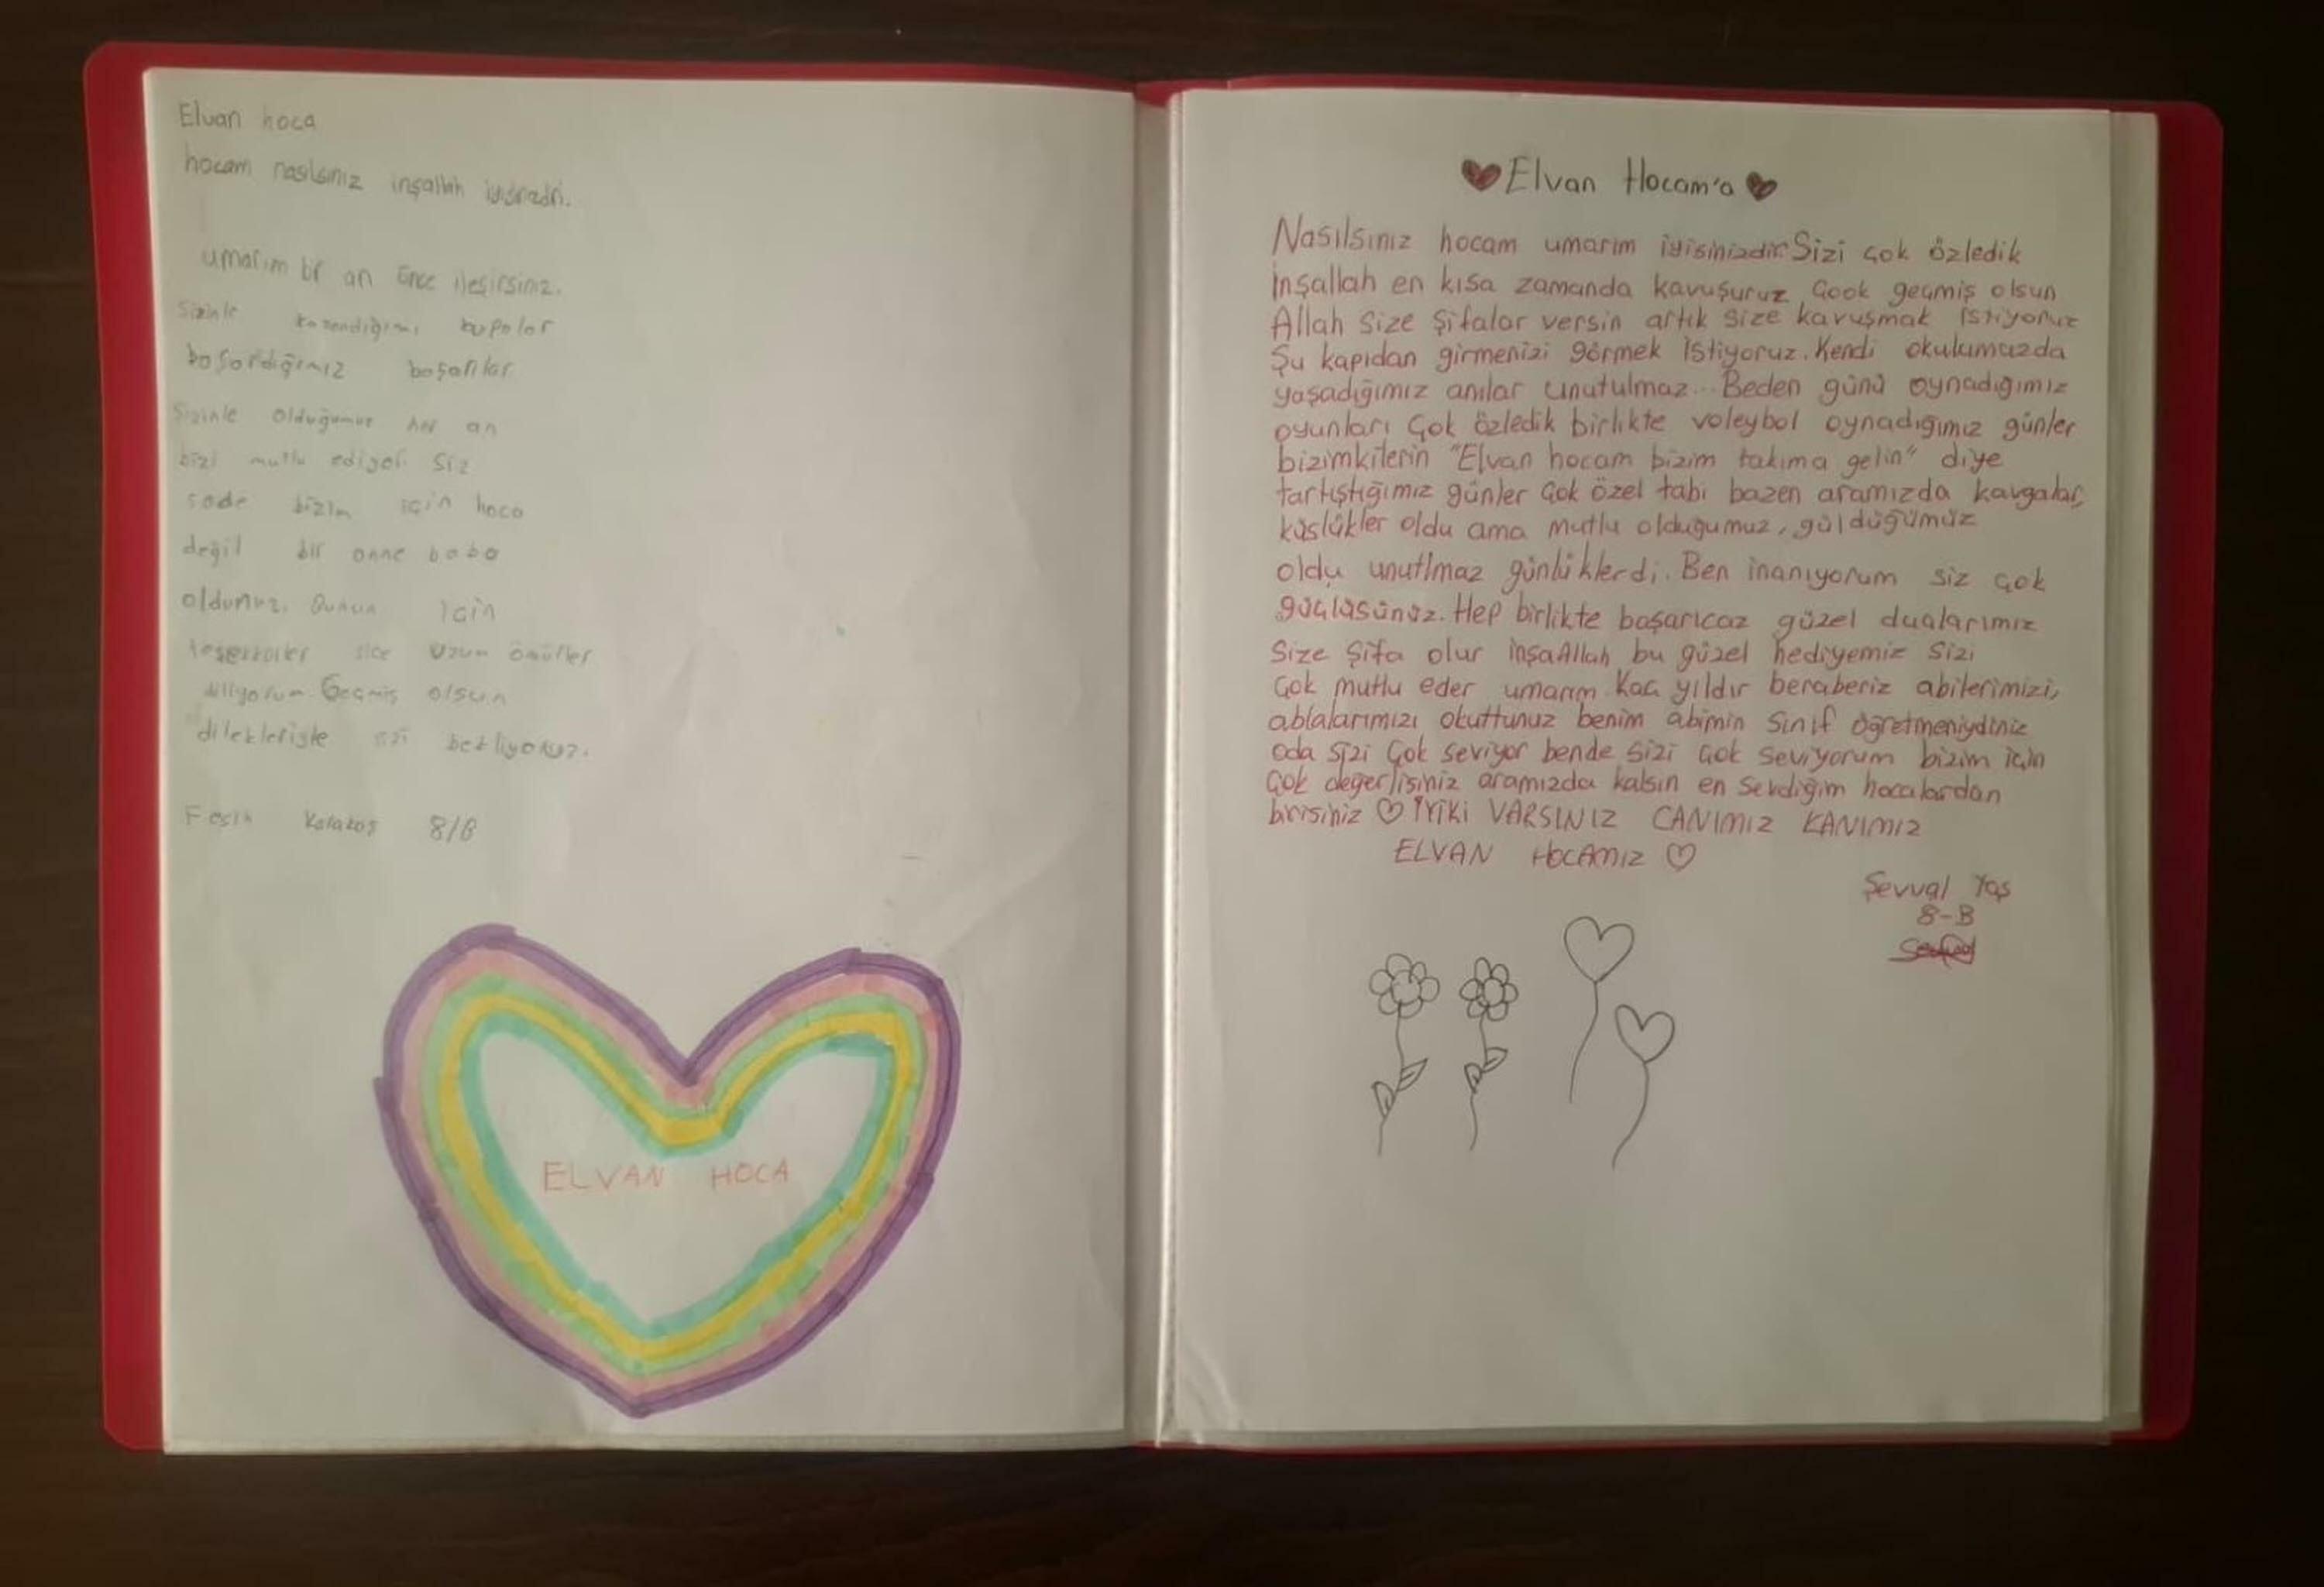 Elvan hoca
hocam nasılsınız inşallah
umarım bir an önce ileşirsiniz.
Sizinle kazandığımı kupalar
başardığımız başarılar
Sizinle olduğumuz her an
bizi mutlu ediyor. Siz
sade bizim için hoca
değil bir anne baba
oldunuz. Bunun için
teşekkürler size uzun ömürler
diliyorum. Geçmiş olsun
dilekleriyle sizi bekliyoruz.
8/B
ELVAN HOCA
Elvan Hocam'a
Nasılsınız hocam umarım iyisinizdir Sizi çok özledik
İnşallah en kısa zamanda kavuşuruz Çook geçmiş olsun
Allah size şifalar versin artık size kavuşmak istiyoruz
Şu kapıdan girmenizi görmek istiyoruz. Kendi okulumuzda
yaşadığımız anılar unutulmaz... Beden günü oynadığımız
oyunları çok özledik birlikte voleybol oynadığımız günler
bizimkilerin "Elvan hocam bizim takıma gelin" diye
tartıştığımız günler çok özel tabi bazen aramızda kavgalar,
küslükler oldu ama mutlu olduğumuz, güldüğümüz
oldu unutlmaz günlüklerdi. Ben inanıyorum siz çok
güçlüsünüz. Hep birlikte başarıcaz güzel dualarımız
size şifa olur inşaAllah bu güzel hediyemiz sizi
çok mutlu eder umarım. Kaç yıldır beraberiz abilerimizi,
ablalarımızı okuttunuz benim abimin sınıf öğretmeniydiniz
oda sizi çok seviyor bende sizi çok seviyorum bizim için
çok değerlisiniz aramızda kalsın en sevdiğim hocalardan
birisiniz İYİKİ VARSINIZ CANIMIZ KANIMIZ
ELVAN HOCAMIZ
Şevval Yaş
8-B